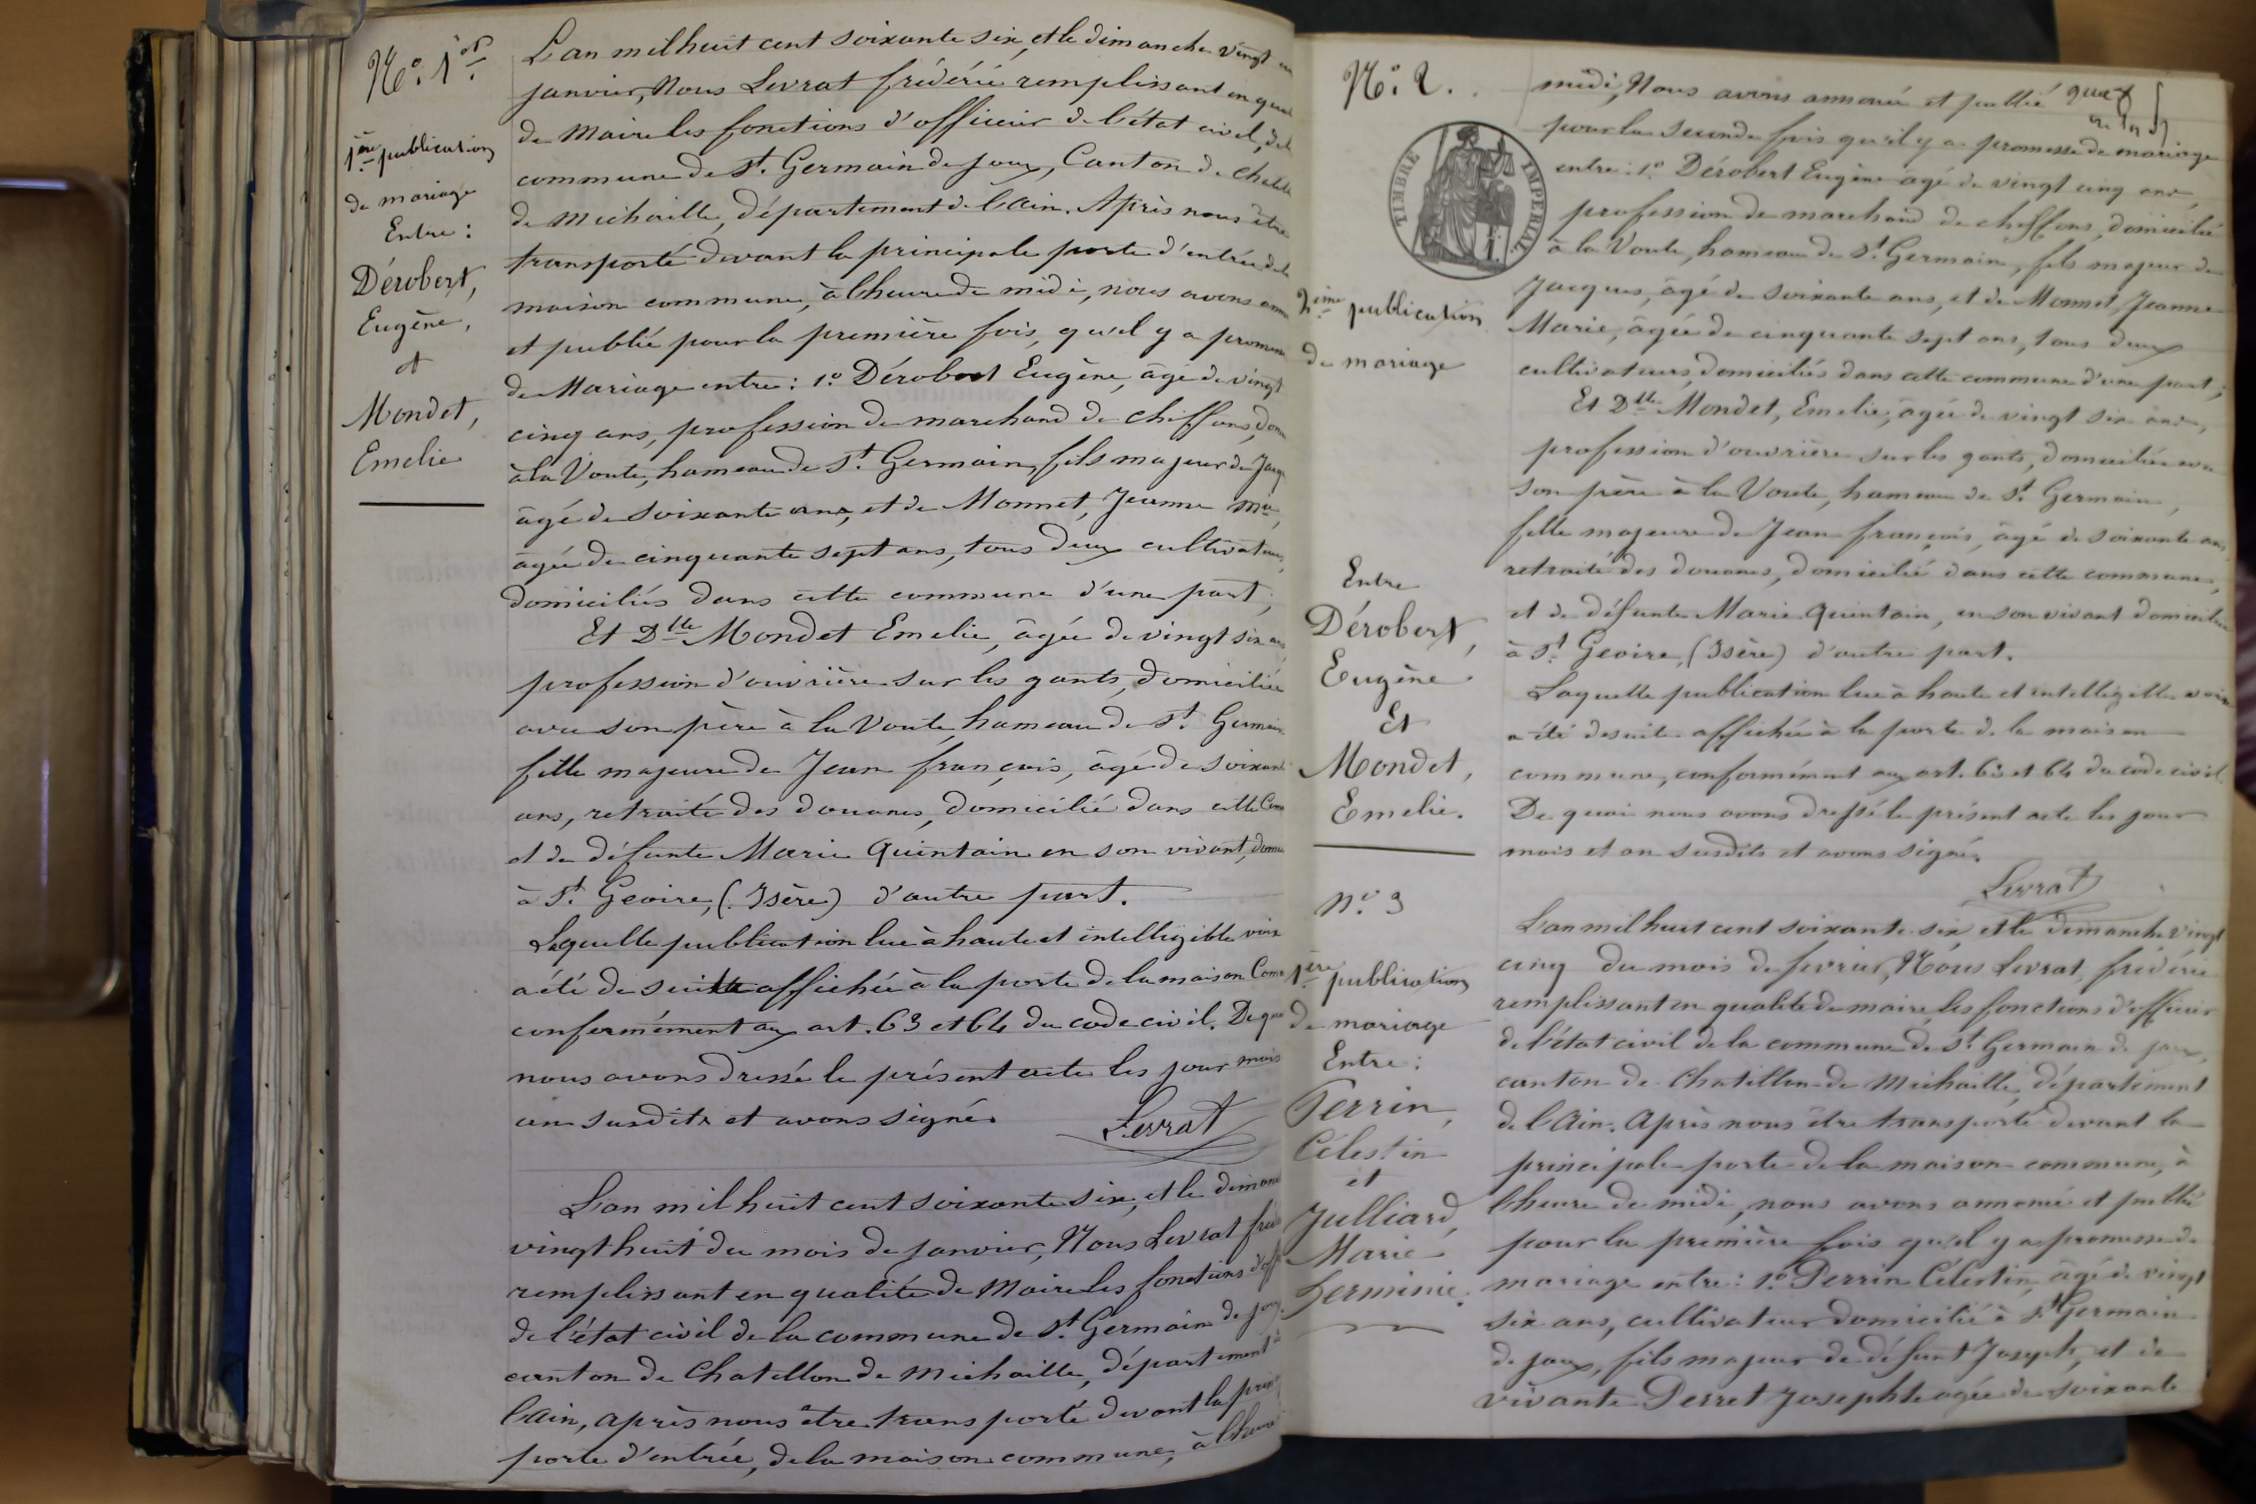 No. 1er
1ère publication
de mariage
Entre:
Dérobert,
Eugène,
et
Mondet,
Emelie
L'an mil huit cent soixante six, et le dimanche vingt
janvier, Nous Levrat frédéric remplissant en
de Maire les fonctions d'officier de l'état civil, de
commune de St. Germain de Joux, Canton de
de michaille, département de l'Ain. Après nous être
transporté devant la principale porte d'entrée de
maison commune, à l'heure de midi, nous avons
et publié pour la première fois, qu'il y a
de Mariage entre: 1o. Dérobert Eugène, âgé de vingt
cinq ans, profession de marchand de chiffons,
à la Voute, hameau de St. Germain, fils majeur de
âgé de soixante ans, et de Monnet, Jeanne Mie,
âgée de cinquante sept ans, tous deux cultivateurs,
domiciliés dans cette commune d'une part;
Et Dlle Mondet Emelie, âgée de vingt six ans,
profession d'ouvrière sur les gants, domiciliée
avec son père à la Voute hameau de St. Germain
fille majeure de Jean françois, âgé de soixante
ans, retraité des douanes, domicilié dans cette
et de défunte Marie Quintain en son vivant,
à St. Geoire, (Isère) d'autre part.
Laquelle publication lue à haute et intelligible voix
a été de suite affichée à la porte de la maison
conformément aux art. 63 et 64 du code civil. De
nous avons dressé le présent acte les jour mois
an susdits et avons signé.
Levrat
L'an mil huit cent soixante six, et le
vingt huit du mois de janvier, Nous Levrat
remplissant en qualité de Maire les fonctions
de l'état civil de la commune de St. Germain de
canton de Chatillon de Michaille, département
l'Ain, après nous être transporté devant la
porte d'entrée, de la maison commune, à
No. 2.
TIMBRE IMPERIAL
2ème publication
de mariage
Entre
Dérobert,
Eugène
Et
Mondet,
Emelie.
midi, Nous avons annoncé et publié
pour la seconde fois qu'il y a promesse de mariage
entre: 1o. Dérobert Eugène âgé de vingt cinq ans,
profession de marchand de chiffons, domicilié
à la Voute, hameau de St. Germain, fils majeur de
Jacques, âgé de soixante ans, et de Monnet, Jeanne
Marie, âgée de cinquante sept ans, tous deux
cultivateurs, domiciliés dans cette commune d'une part;
Et Dlle Mondet, Emelie, âgée de vingt six ans,
profession d'ouvrière sur les gants, domiciliée avec
son père à la Voute, hameau de St. Germain,
fille majeure de Jean françois, âgé de soixante ans
retraité des douanes, domicilié dans cette commune,
et de défunte Marie Quintain, en son vivant domiciliée
à St. Geoire, (Isère) d'autre part.
Laquelle publication lue à haute et intelligible voix
a été desuite affichée à la porte de la maison
commune, conformément aux art. 63 et 64 du code civil
De quoi nous avons dressé le présent acte les jour
mois et an susdits et avons signé.
Levrat
No. 3
1ère publication
de mariage
Entre:
Perrin,
Célestin
et
Julliard,
Marie
herminie.
L'an mil huit cent soixante six et le dimanche vingt
cinq du mois de fevrier, Nous Levrat, frédéric
remplissant en qualité de maire, les fonctions d'officier
de l'état civil de la commune de St. Germain de joux,
canton de Chatillon de Michaille, département
de l'Ain. Après nous être transporté devant la
principale porte de la maison commune, à
l'heure de midi, nous avons annoncé et publié
pour la première fois qu'il y a promesse de
mariage entre: 1o. Perrin Célestin, âgé de vingt
six ans, cultivateur domicilié à St Germain
de joux, fils majeur de défunt Joseph, et de
vivante Perret Josephte agée de soixante